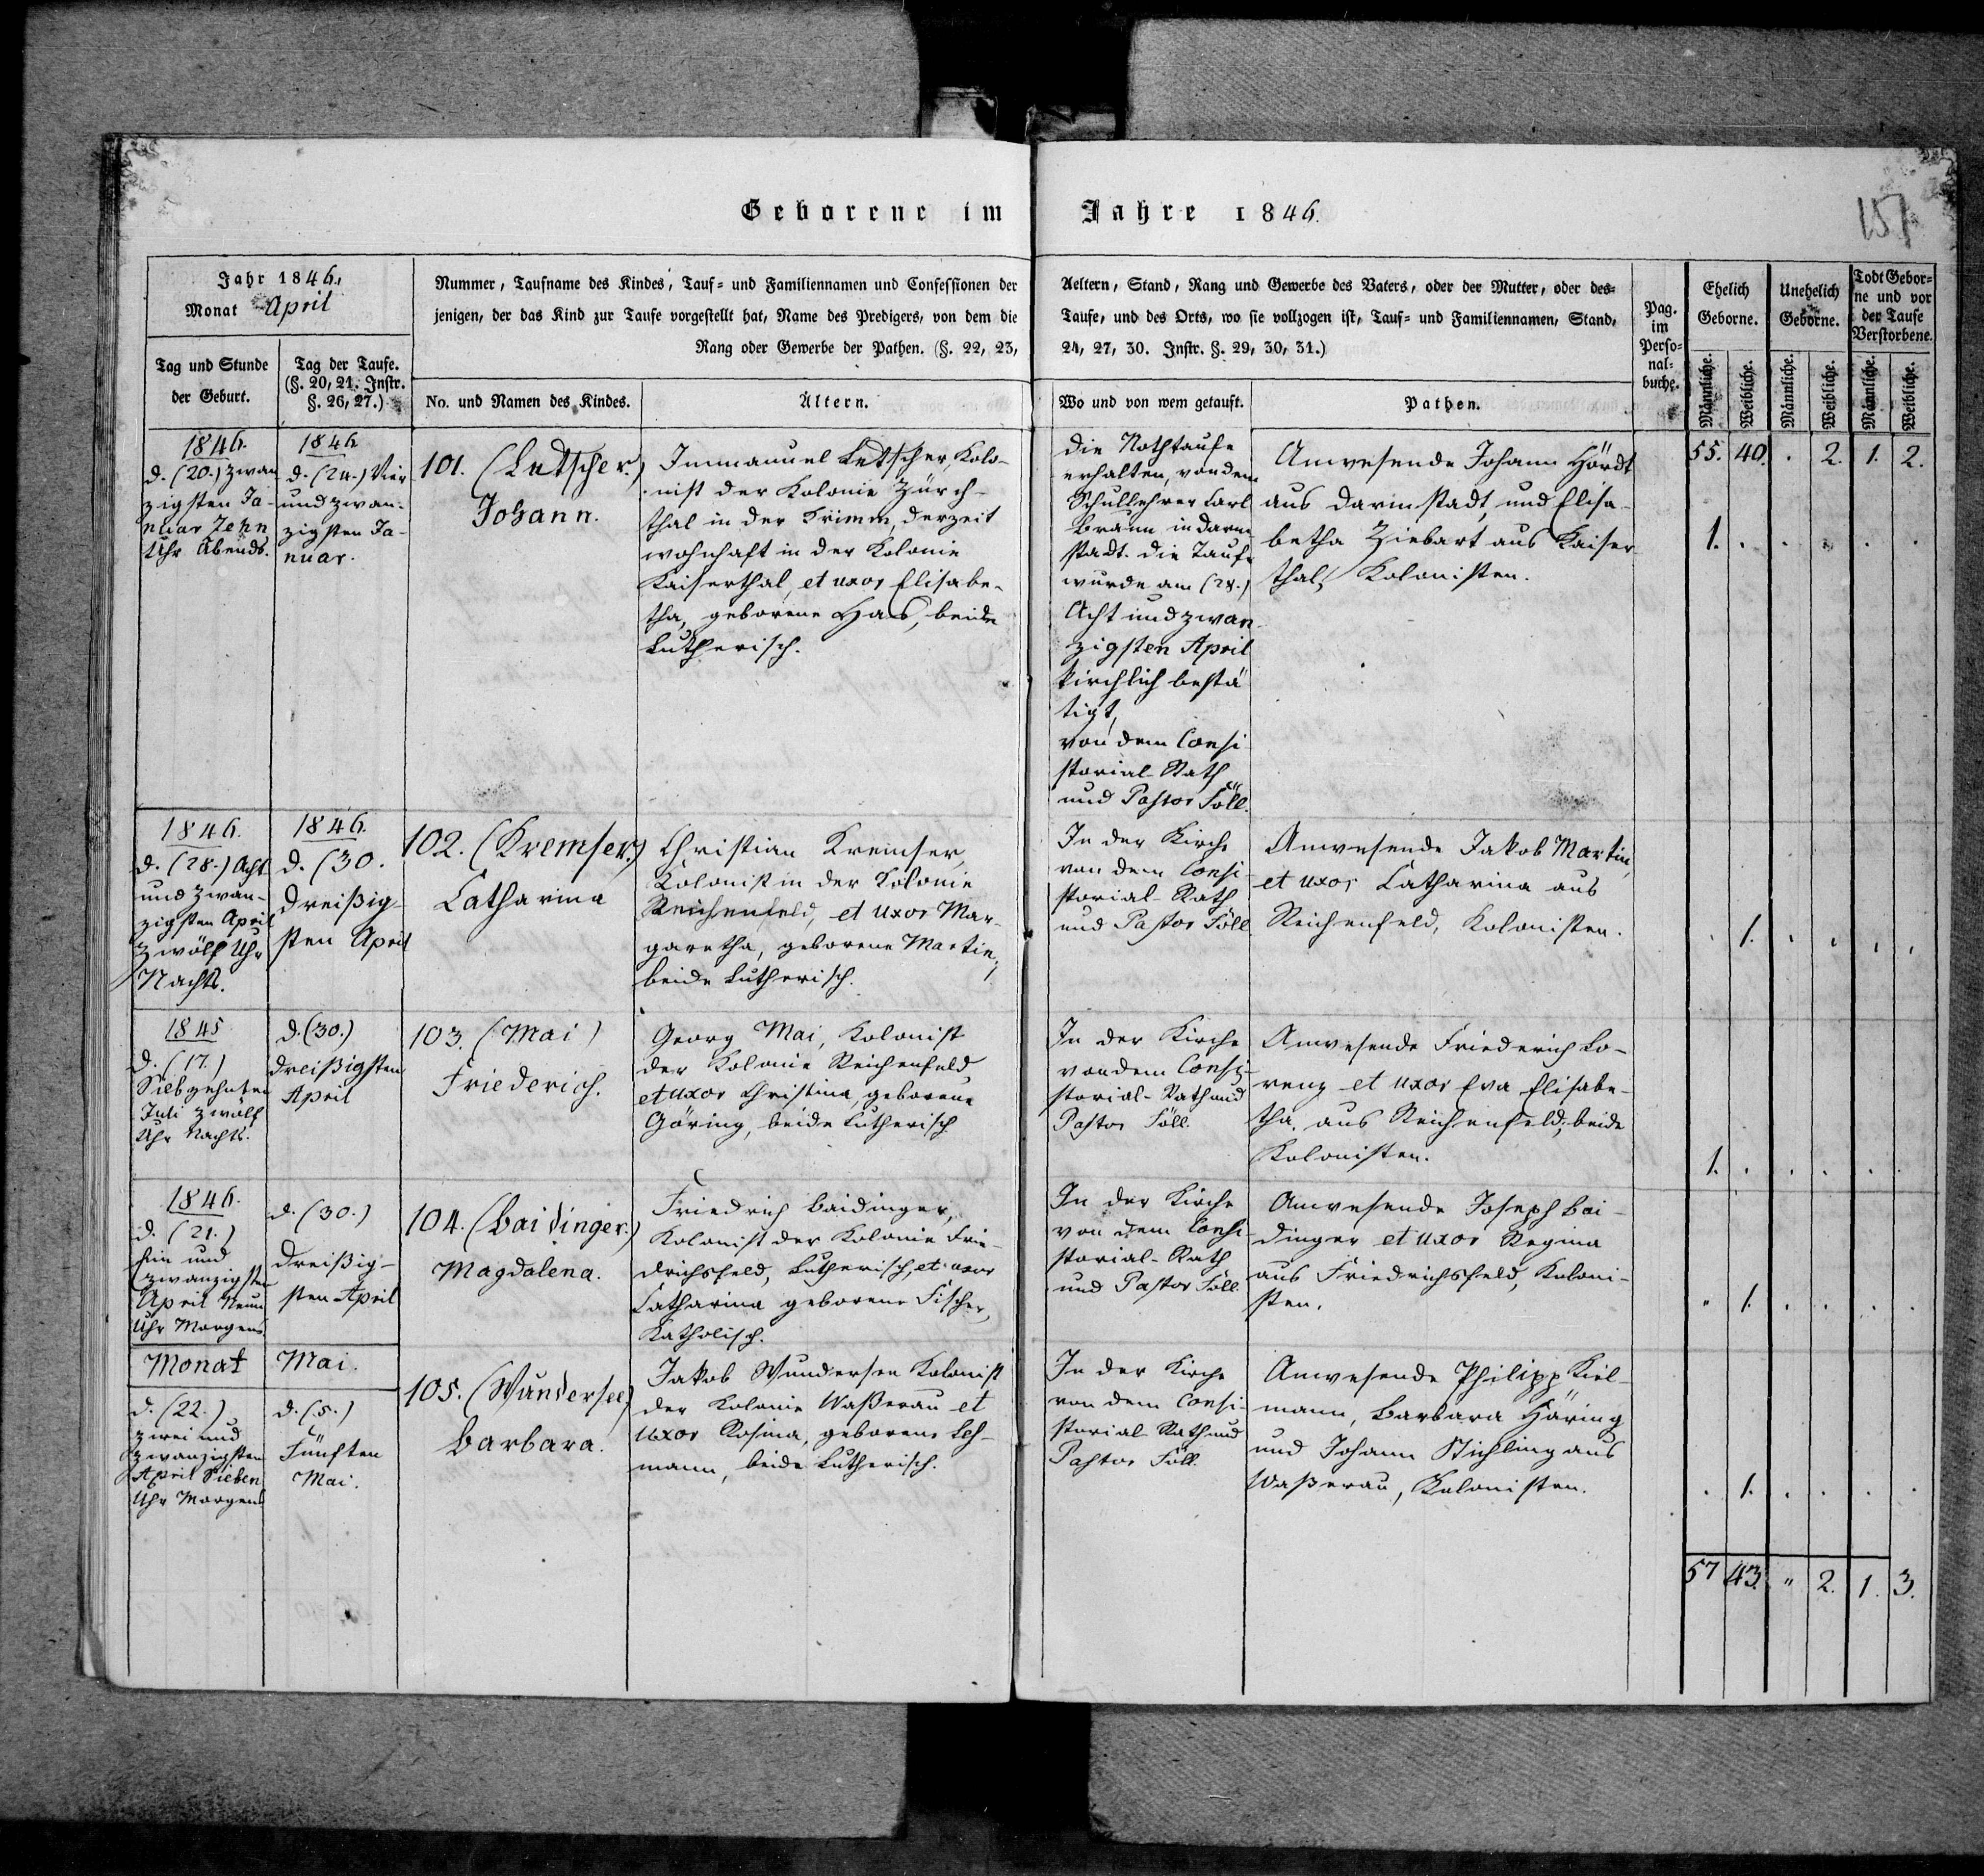 Geborene im Jahre 1846.
157
Jahr 1846.
Monat April
Tag und Stunde
der Geburt.
Tag der Taufe.
(§. 20, 21. Instr.
§. 26, 27.)
Nummer, Taufname des Kindes, Tauf- und Familiennamen und Confessionen der
jenigen, der das Kind zur Taufe vorgestellt hat, Name des Predigers, von dem die
Rang oder Gewerbe der Pathen. (§. 22, 23,
No. und Namen des Kindes.
Ältern.
Aeltern, Stand, Rang und Gewerbe des Vaters, oder der Mutter, oder des-
Taufe, und des Orts, wo sie vollzogen ist, Tauf- und Familiennamen, Stand,
24, 27, 30. Instr. §. 29, 30, 31.)
Wo und von wem getauft.
Pathen.
Pag.
im
Perso-
nal-
buche.
Ehelich
Geborne.
Unehelich
Geborne.
Todt Gebor-
ne und vor
der Taufe
Verstorbene.
Männliche.
Weibliche.
Männliche.
Weibliche.
Männliche.
Weibliche.
1846.
d. (20.) zwan
zigsten Ja-
nuar Zehn
Uhr Abends.
1846
d. (24.) Vier
und zwan-
zigsten Ja-
nuar.
101. (Letscher.)
Johann.
Immanuel Letscher, Kolo-
nist der Kolonie Zürch-
thal in der Krimm, derzeit
wohnhaft in der Kolonie
Kaiserthal, et uxor Elisabe-
tha, geborene Has, beide
Lutherisch.
Die Nothtaufe
erhalten, von dem
Schullehrer Carl
Braun in Darm
stadt. Die Taufe
wurde am (28.)
Acht und zwan
zigsten April
kirchlich bestä
tigt,
von dem Consi
storial-Rath
und Pastor Föll.
Anwesende Johann Hördt
aus Darmstadt, und Elisa-
betha Ziebart aus Kaiser
thal, Kolonisten.
55. 40. . 2. 1. 2.
1. . . . . .
1846.
d. (28.) Acht
und zwan-
zigsten April
Zwölf Uhr
Nachts.
1846.
d. (30.
Dreißig-
sten April
102. (Kremser.)
Catharina
Christian Kremser,
Kolonist in der Kolonie
Reichenfeld, et uxor Mar-
garetha, geborene Martin,
beide Lutherisch.
In der Kirche
von dem Consi-
storial-Rath
und Pastor Föll
Anwesende Jakob Martin,
et uxor Catharina aus
Reichenfeld, Kolonisten.
. 1. . . . .
1845
d. (17.)
Siebzehnten
Juli zwölf
Uhr Nachts.
d. (30.)
Dreißigsten
April
103. (Mai)
Friederich.
Georg Mai, Kolonist
der Kolonie Reichenfeld
et uxor Christina, geborene
Göring, beide Lutherisch
In der Kirche
von dem Consi-
storial-Rath und
Pastor Föll.
Anwesende Friederich Lo-
renz et uxor Eva Elisabe-
tha. aus Reichenfeld, beide
Kolonisten.
1. . . . . .
1846.
d. (21.)
Ein und
zwanzigsten
April Neun
Uhr Morgens
d. (30.)
Dreißig-
sten April
104. (Baidinger.)
Magdalena.
Friedrich Baidinger,
Kolonist der Kolonie Frie-
drichsfeld, Lutherisch, et uxor
Catharina geborene Fischer,
Katholisch.
In der Kirche
von dem Consi-
storial-Rath
und Pastor Föll.
Anwesende Joseph Bai-
dinger et uxor Regina
aus Friedrichsfeld, Koloni-
sten.
" 1. . . . .
Monat Mai.
d. (22.)
zwei und
zwanzigsten
April Sieben
Uhr Morgens
d. (5.)
Fünften
Mai.
105. (Wundersee)
Barbara.
Jakob Wundersee Kolonist
der Kolonie Waßerau et
uxor Rosina, geborene Leh-
mann, beide Lutherisch.
In der Kirche
von dem Consi-
storial-Rath und
Pastor Föll.
Anwesende Philipp Kiel-
mann, Barbara Häring
und Johann Stichling aus
Waßerau, Kolonisten.
. 1. . . . .
57 43. " 2. 1. 3.